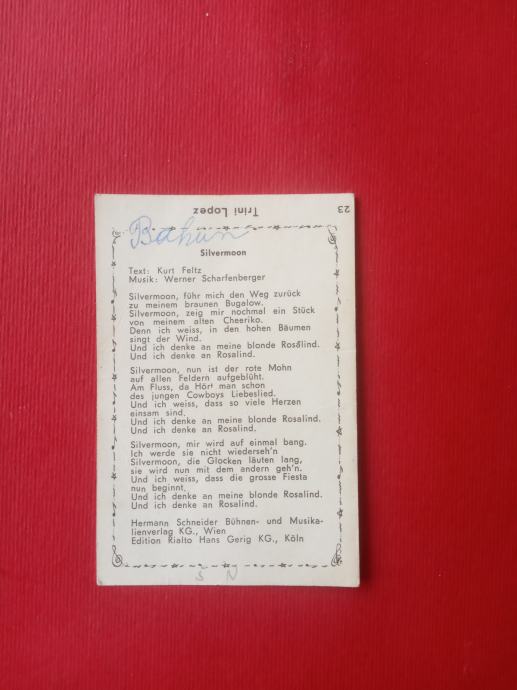 23
Trini Lopez
Silvermoon
Text: Kurt Feltz
Musik: Werner Scharfenberger
Silvermoon, führ mich den Weg zurück
zu meinem braunen Bugalow.
Silvermoon, zeig mir nochmal ein Stück
von meinem alten Cheeriko.
Denn ich weiss, in den hohen Bäumen
singt der Wind.
Und ich denke an meine blonde Rosalind.
Und ich denke an Rosalind.
Silvermoon, nun ist der rote Mohn
auf allen Feldern aufgeblüht.
Am Fluss, da Hört man schon
des jungen Cowboys Liebeslied.
Und ich weiss, dass so viele Herzen
einsam sind.
Und ich denke an meine blonde Rosalind.
Und ich denke an Rosalind.
Silvermoon, mir wird auf einmal bang.
Ich werde sie nicht wiederseh'n
Silvermoon, die Glocken läuten lang,
sie wird nun mit dem andern geh'n.
Und ich weiss, dass die grosse Fiesta
nun beginnt.
Und ich denke an meine blonde Rosalind.
Und ich denke an Rosalind.
Hermann Schneider Bühnen- und Musika-
lienverlag KG., Wien
Edition Rialto Hans Gerig KG., Köln